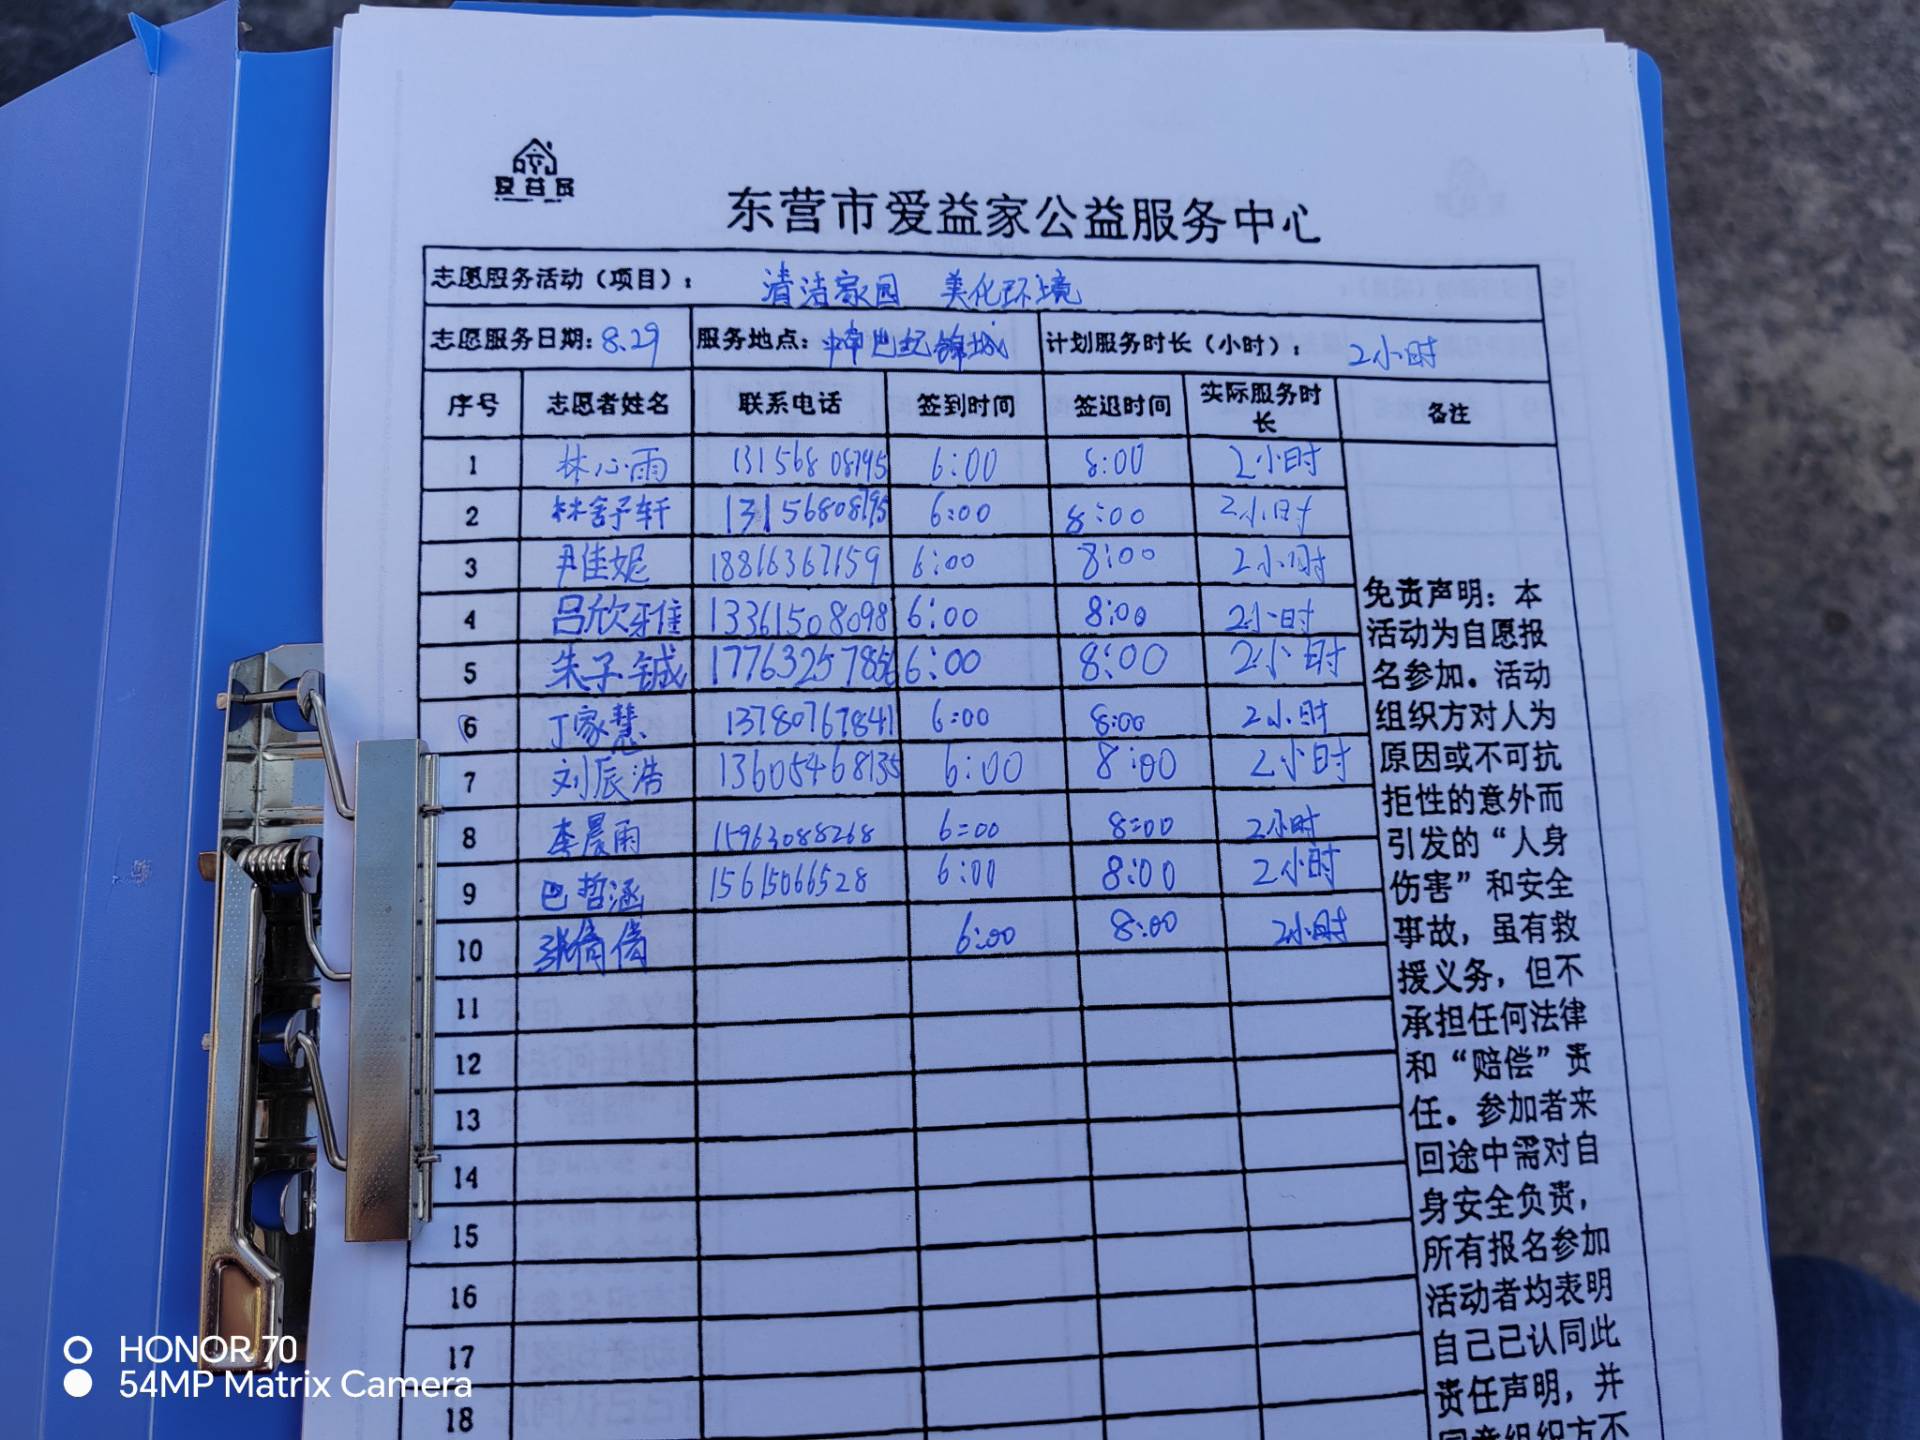 爱益家
东营市爱益家公益服务中心
志愿服务活动（项目）： 清洁家园 美化环境
志愿服务日期：8.29 服务地点： 世纪锦城 计划服务时长（小时）： 2小时
序号 志愿者姓名 联系电话 签到时间 签退时间 实际服务时长 备注
1 林心雨 13156808795 6:00 8:00 2小时
2 林舒轩 13156808795 6:00 8:00 2小时
3 尹佳妮 18816367159 6:00 8:00 2小时
4 吕欣雅 13361508098 6:00 8:00 2小时
5 朱子铖 17763257856 6:00 8:00 2小时
6 丁家慧 13780767841 6:00 8:00 2小时
7 刘辰浩 13605468135 6:00 8:00 2小时
8 李晨雨 15963088268 6:00 8:00 2小时
9 巴哲涵 15615066528 6:00 8:00 2小时
10 张倩倩 6:00 8:00 2小时
11
12
13
14
15
16
17
18
免责声明：本
活动为自愿报
名参加。活动
组织方对人为
原因或不可抗
拒性的意外而
引发的“人身
伤害”和安全
事故，虽有救
援义务，但不
承担任何法律
和“赔偿”责
任。参加者来
回途中需对自
身安全负责，
所有报名参加
活动者均表明
自己已认同此
责任声明，并
同意组织方不
HONOR 70
54MP Matrix Camera